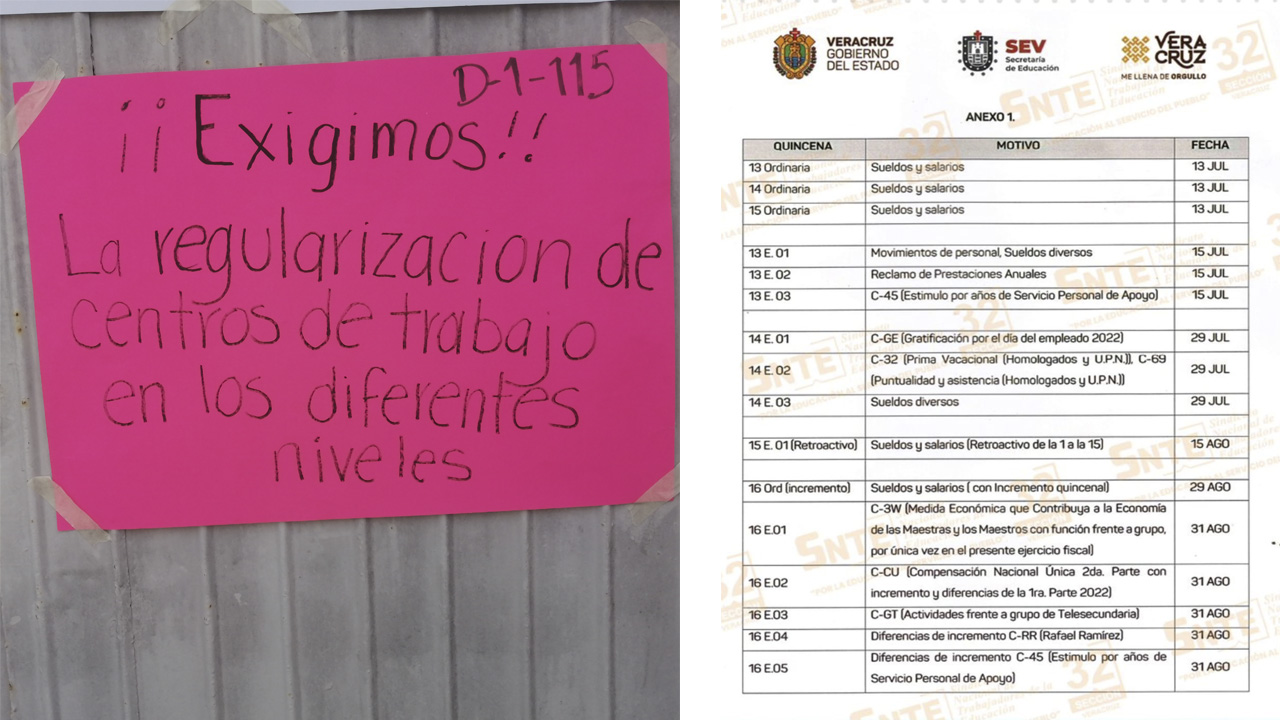 D-1-115
¡¡Exigimos!!
La regularizacion de
centros de trabajo
en los diferentes
niveles
VERACRUZ
GOBIERNO
DEL ESTADO
SEV
Secretaría
de Educación
VERA
CRUZ
ME LLENA DE ORGULLO
ANEXO 1.
QUINCENA MOTIVO FECHA
13 Ordinaria Sueldos y salarios 13 JUL
14 Ordinaria Sueldos y salarios 13 JUL
15 Ordinaria Sueldos y salarios 13 JUL
13 E. 01 Movimientos de personal, Sueldos diversos 15 JUL
13 E. 02 Reclamo de Prestaciones Anuales 15 JUL
13 E. 03 C-45 (Estimulo por años de Servicio Personal de Apoyo) 15 JUL
14 E. 01 C-GE (Gratificación por el día del empleado 2022) 29 JUL
14 E. 02 C-32 (Prima Vacacional (Homologados y U.P.N.)), C-69
(Puntualidad y asistencia (Homologados y U.P.N.)) 29 JUL
14 E. 03 Sueldos diversos 29 JUL
15 E. 01 (Retroactivo) Sueldos y salarios (Retroactivo de la 1 a la 15) 15 AGO
16 Ord (incremento) Sueldos y salarios ( con Incremento quincenal) 29 AGO
16 E.01 C-3W (Medida Económica que Contribuya a la Economía
de las Maestras y los Maestros con función frente a grupo,
por única vez en el presente ejercicio fiscal) 31 AGO
16 E.02 C-CU (Compensación Nacional Única 2da. Parte con
incremento y diferencias de la 1ra. Parte 2022) 31 AGO
16 E.03 C-GT (Actividades frente a grupo de Telesecundaria) 31 AGO
16 E.04 Diferencias de incremento C-RR (Rafael Ramírez) 31 AGO
16 E.05 Diferencias de incremento C-45 (Estimulo por años de
Servicio Personal de Apoyo) 31 AGO
SNTE
32
SECCIÓN